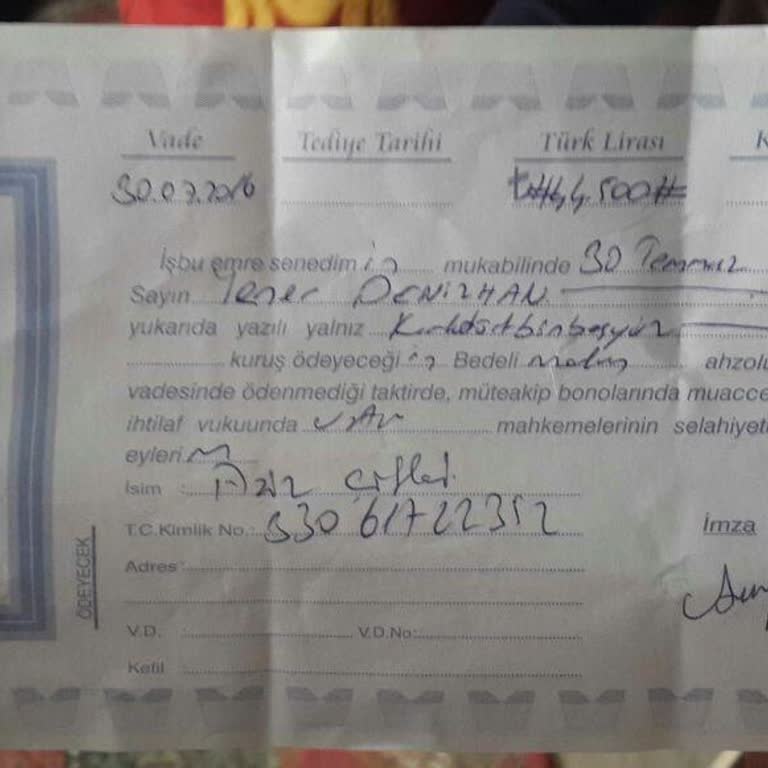 Vade Tediye Tarihi Türk Lirası K
30.07.2016 #44.500#
İşbu emre senedim in mukabilinde 30 Temmuz
Sayın DENİZHAN
yukarıda yazılı yalnız Kırkdörtbinbeşyüz
kuruş ödeyeceği Bedeli malen ahzolu
vadesinde ödenmediği taktirde, müteakip bonolarında muacce
ihtilaf vukuunda VAN mahkemelerinin selahiyeti
eyleri m
İsim :
T.C.Kimlik No.: 33061722312
İmza
Adres :
ÖDEYECEK
V.D. : V.D.No:
Kefil :